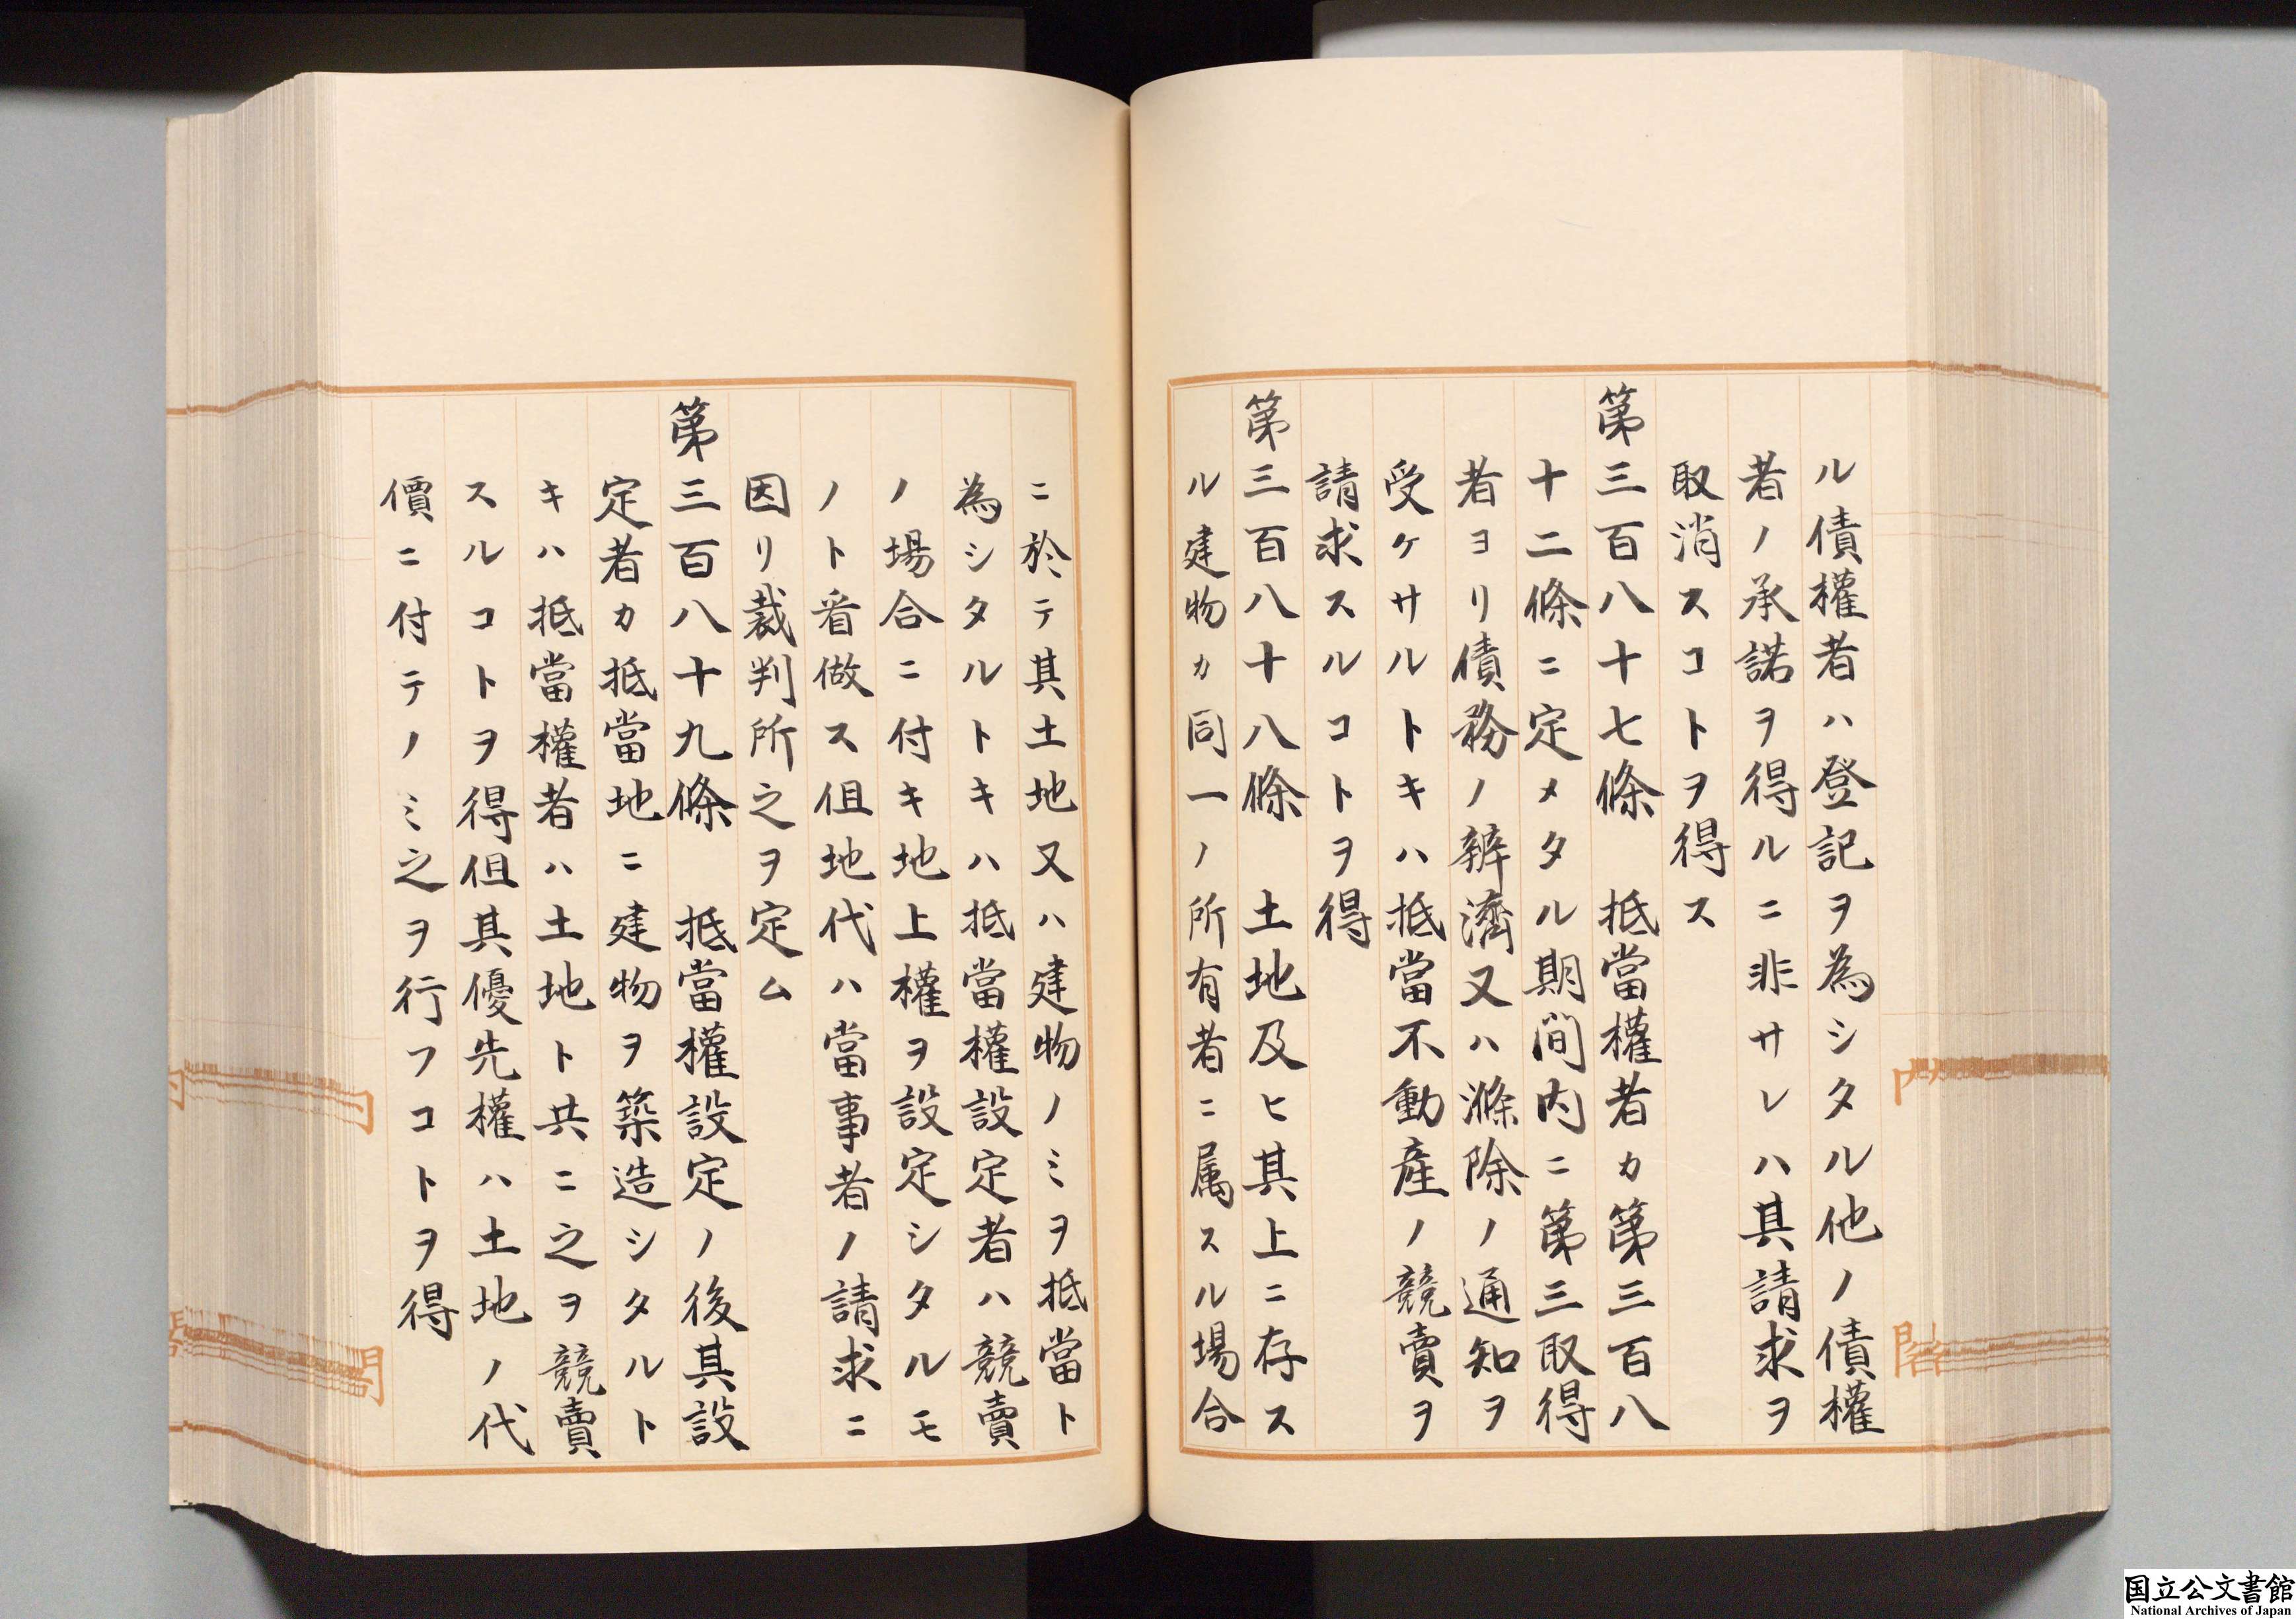 ル債權者ハ登記ヲ為シタル他ノ債權
者ノ承諾ヲ得ルニ非サレハ其請求ヲ
取消スコトヲ得ス
第三百八十七條　抵當權者カ第三百八
十二條ニ定メタル期間内ニ第三取得
者ヨリ債務ノ辨濟又ハ滌除ノ通知ヲ
受ケサルトキハ抵當不動產ノ競賣ヲ
請求スルコトヲ得
第三百八十八條　土地及ヒ其上ニ存ス
ル建物カ同一ノ所有者ニ属スル場合
ニ於テ其土地又ハ建物ノミヲ抵當ト
為シタルトキハ抵當權設定者ハ競賣
ノ場合ニ付キ地上權ヲ設定シタルモ
ノト看做ス但地代ハ當事者ノ請求ニ
因リ裁判所之ヲ定ム
第三百八十九條　抵當權設定ノ後其設
定者カ抵當地ニ建物ヲ築造シタルト
キハ抵當權者ハ土地ト共ニ之ヲ競賣
スルコトヲ得但其優先權ハ土地ノ代
價ニ付テノミ之ヲ行フコトヲ得
国立公文書館
National Archives of Japan